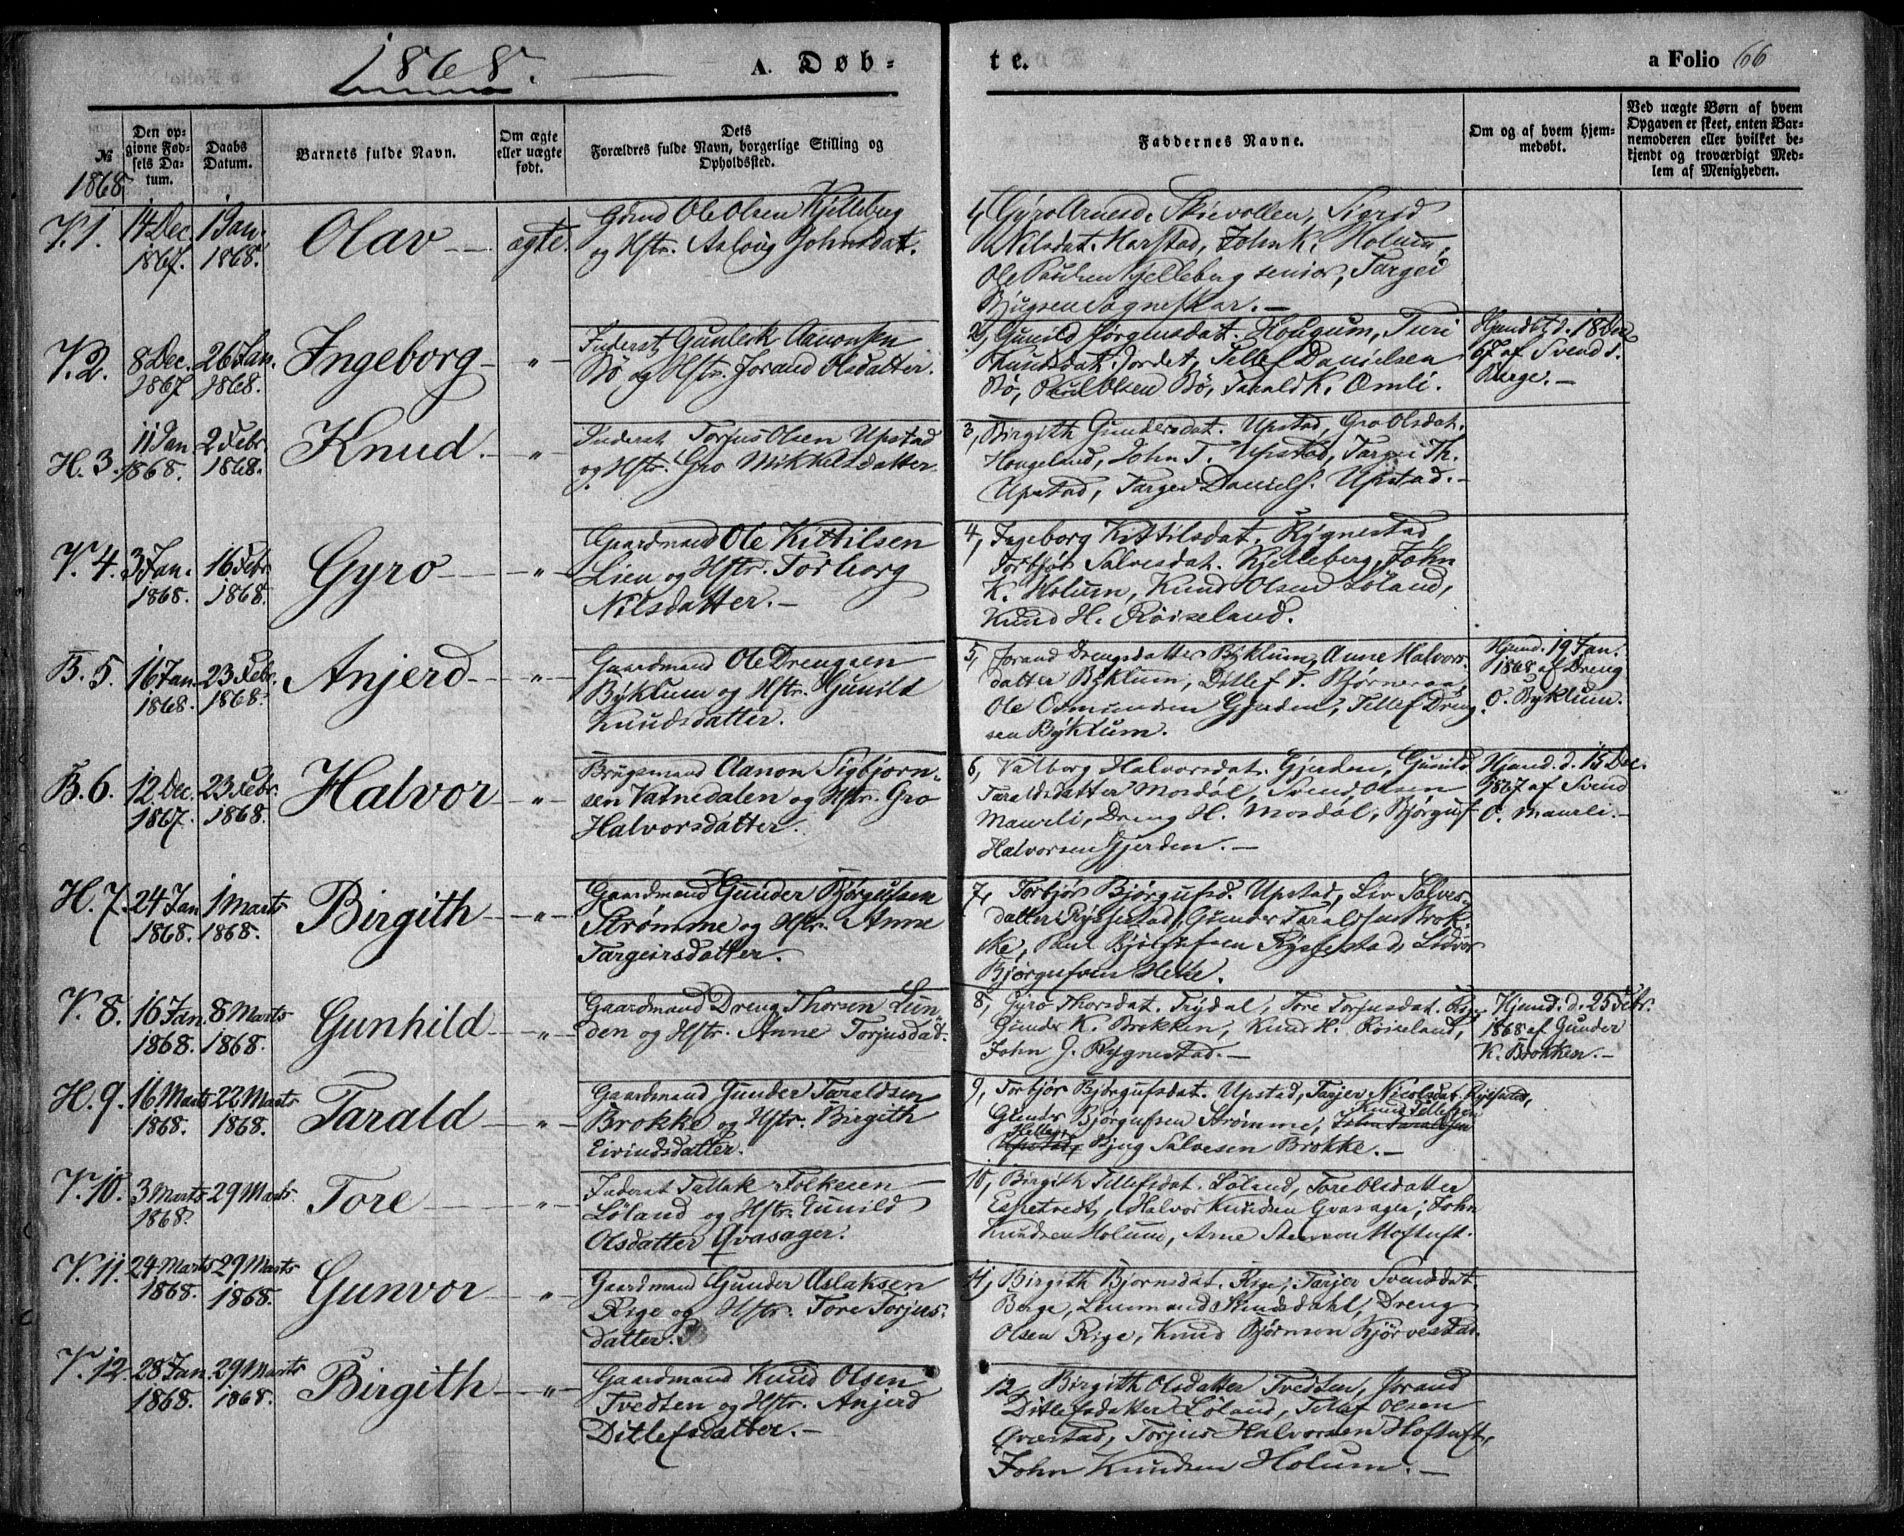 1868.
A. Døb-
te.
a Folio 66
№
1868
Den op-
givne Fød-
sels Da-
tum.
Daabs
Datum.
Barnets fulde Navn.
Om ægte
eller uægte
født.
Dets
Forældres fulde Navn, borgerlige Stilling og
Opholdssted.
Faddernes Navne.
Om og af hvem hjem-
medøbt.
Ved uægte Børn af hvem
Opgaven er skeet, enten Bar-
nemoderen eller hvilket be-
kjendt og troværdigt Med-
lem af Menigheden.
V. 1. 14 Dec. 1867. 1 Jan. 1868. Olav — ægte.
Ole Olsen Kjelleberg
og Hstr. Aslaug Johnsdat.
1, Gyro Arnesd. Skievollen, Sigrid
Nilsdat. Harstad, John K. Holum,
Ole Paulsen Kjelleberg senior, Targei
Bjugsen Sagneskar. —
V. 2. 8 Dec. 1867 26 Jan. 1868. Ingeborg — "
Inderst Gunleik Aanonsen
Bø og Hstr. Jorand Olsdatter.
2, Gunild Jørgensdat. Hougum, Turi
Knudsdat. Jordet, Tellef Danielsen
Bø, Paul Olsen Bø, Tarald K. Omli.
Hjemdbt. d. 18 Dec
67 af Svend T.
Berge. —
H. 3. 11 Jan 1868. 2 Febr. 1868. Knud. — "
Inderst Torjus Olsen Upstad
og Hstr. Gro Mikkelsdatter.
3, Birgith Gundersdat. Upstad, Gro Olsdat.
Hougeland, John T. Upstad, Targei Th.
Upstad, Targei Daniels. Upstad. —
V. 4. 3 Jan. 1868. 16 Febr. 1868. Gyro — "
Gaardmand Ole Kittilsen
Lien og Hstr. Torborg
Nilsdatter. —
4, Ingeborg Kittilsdat. Rygnestad,
Torbjør Salvesdat. Kjelleberg, John
K. Holum, Knud Olsen Løland,
Knud H. Røiseland.
B. 5. 16 Jan 1868. 23 Febr. 1868. Anjerd — "
Gaardmand Ole Drengsen
Byklum og Hstr. Gunild
Knudsdatter.
5, Jorand Drengsdatter Byklum, Anne Halvors-
datter Byklum, Ditlef T. Bjørneraa,
Ole Osmundsen Gjerden, Tellef Dreng-
sen Byklum.
Hjemd. 19 Jan.
1868 af Dreng
O. Byklum.
B. 6. 12 Dec. 1867. 23 Febr. 1868. Halvor — "
Brugsmand Aanon Sigbjørn-
sen Vatnedalen og Hstr. Gro
Halvorsdatter.
6, Valborg Halvorsdat. Gjerden, Gunild
Taraldsdatter Mosdøl, Svend Olsen
Maurli, Dreng H. Mosdøl, Bjørguf
Halvorsen Gjerden. —
Hjemd. d. 15 Dec.
1867 af Svend
O. Maurli. —
H. 7. 24 Jan 1868. 1 Marts 1868. Birgith — "
Gaardmand Gunder Bjørgufsen
Strømme og Hstr. Anne
Targeirsdatter.
7, Torbjør Bjørgufsd. Upstad, Liv Salves-
datter Rysstad, Gunder Taraldsen Brok-
ke, Paul Bjørgufsen Rysstad,
Bjørgufsen Helle.
V. 8. 16 Jan. 1868. 8 Marts 1868. Gunhild — "
Gaardmand Dreng Thorsen Lun-
den og Hstr. Anne Torjusdat.
8, Gyro Thorsdat. Trydal, Tore Torjusdat. Rige,
Gunder K. Brokken, Knud H. Røiseland,
John G. Rygnestad. —
Hjemd. d. 25 Febr.
1868 af Gunder
K. Brokken. —
H. 9. 16 Marts 1868. 22 Marts 1868. Tarald — "
Gaardmand Gunder Taraldsen
Brokke og Hstr. Birgith
Eivindsdatter.
9, Torbjør Bjørgufsdat. Upstad, Tarjer Nicolsdat. Rysstad,
Gunder Bjørgufsen Strømme, Knud Tellefsen John Taraldsen
Helle, Upstad, Bjug Salvesen Brokke. —
V. 10. 3 Marts 1868. 29 Marts Tore — "
Inderst Tallak Folkesen
Løland og Hstr. Gunild
Olsdatter Qvasager.
10, Birgith Tellefsdat. Løland, Tore Olsdatter
Espetvedt, Halvor Knudsen Qvasager, John
Knudsen Holum, Arne Stenson Hoftuft.
V. 11. 24 Marts 1868. 29 Marts 1868. Gunvor — "
Gaardmand Gunder Aslaksen
Rige og Hstr. Tore Torjus-
datter.
11, Birgith Bjørnsdat. Rige, Tarjer Svensdat.
Berge, Lensmand Dreng
Olsen Rige, Knud Bjørnson Kjørvestad.
V. 12. 28 Jan. 1868. 29 Marts 1868. Birgith — "
Gaardmand Knud Olsen
Tvedten og Hstr. Anjerd
Ditlefsdatter. —
12, Birgith Olsdatter Tvedten, Jorand
Ditlefsdatter Løland, Tellef Olsen
Qvestad, Torjus Halvorsen Hoftuft,
John Knudsen Holum. —